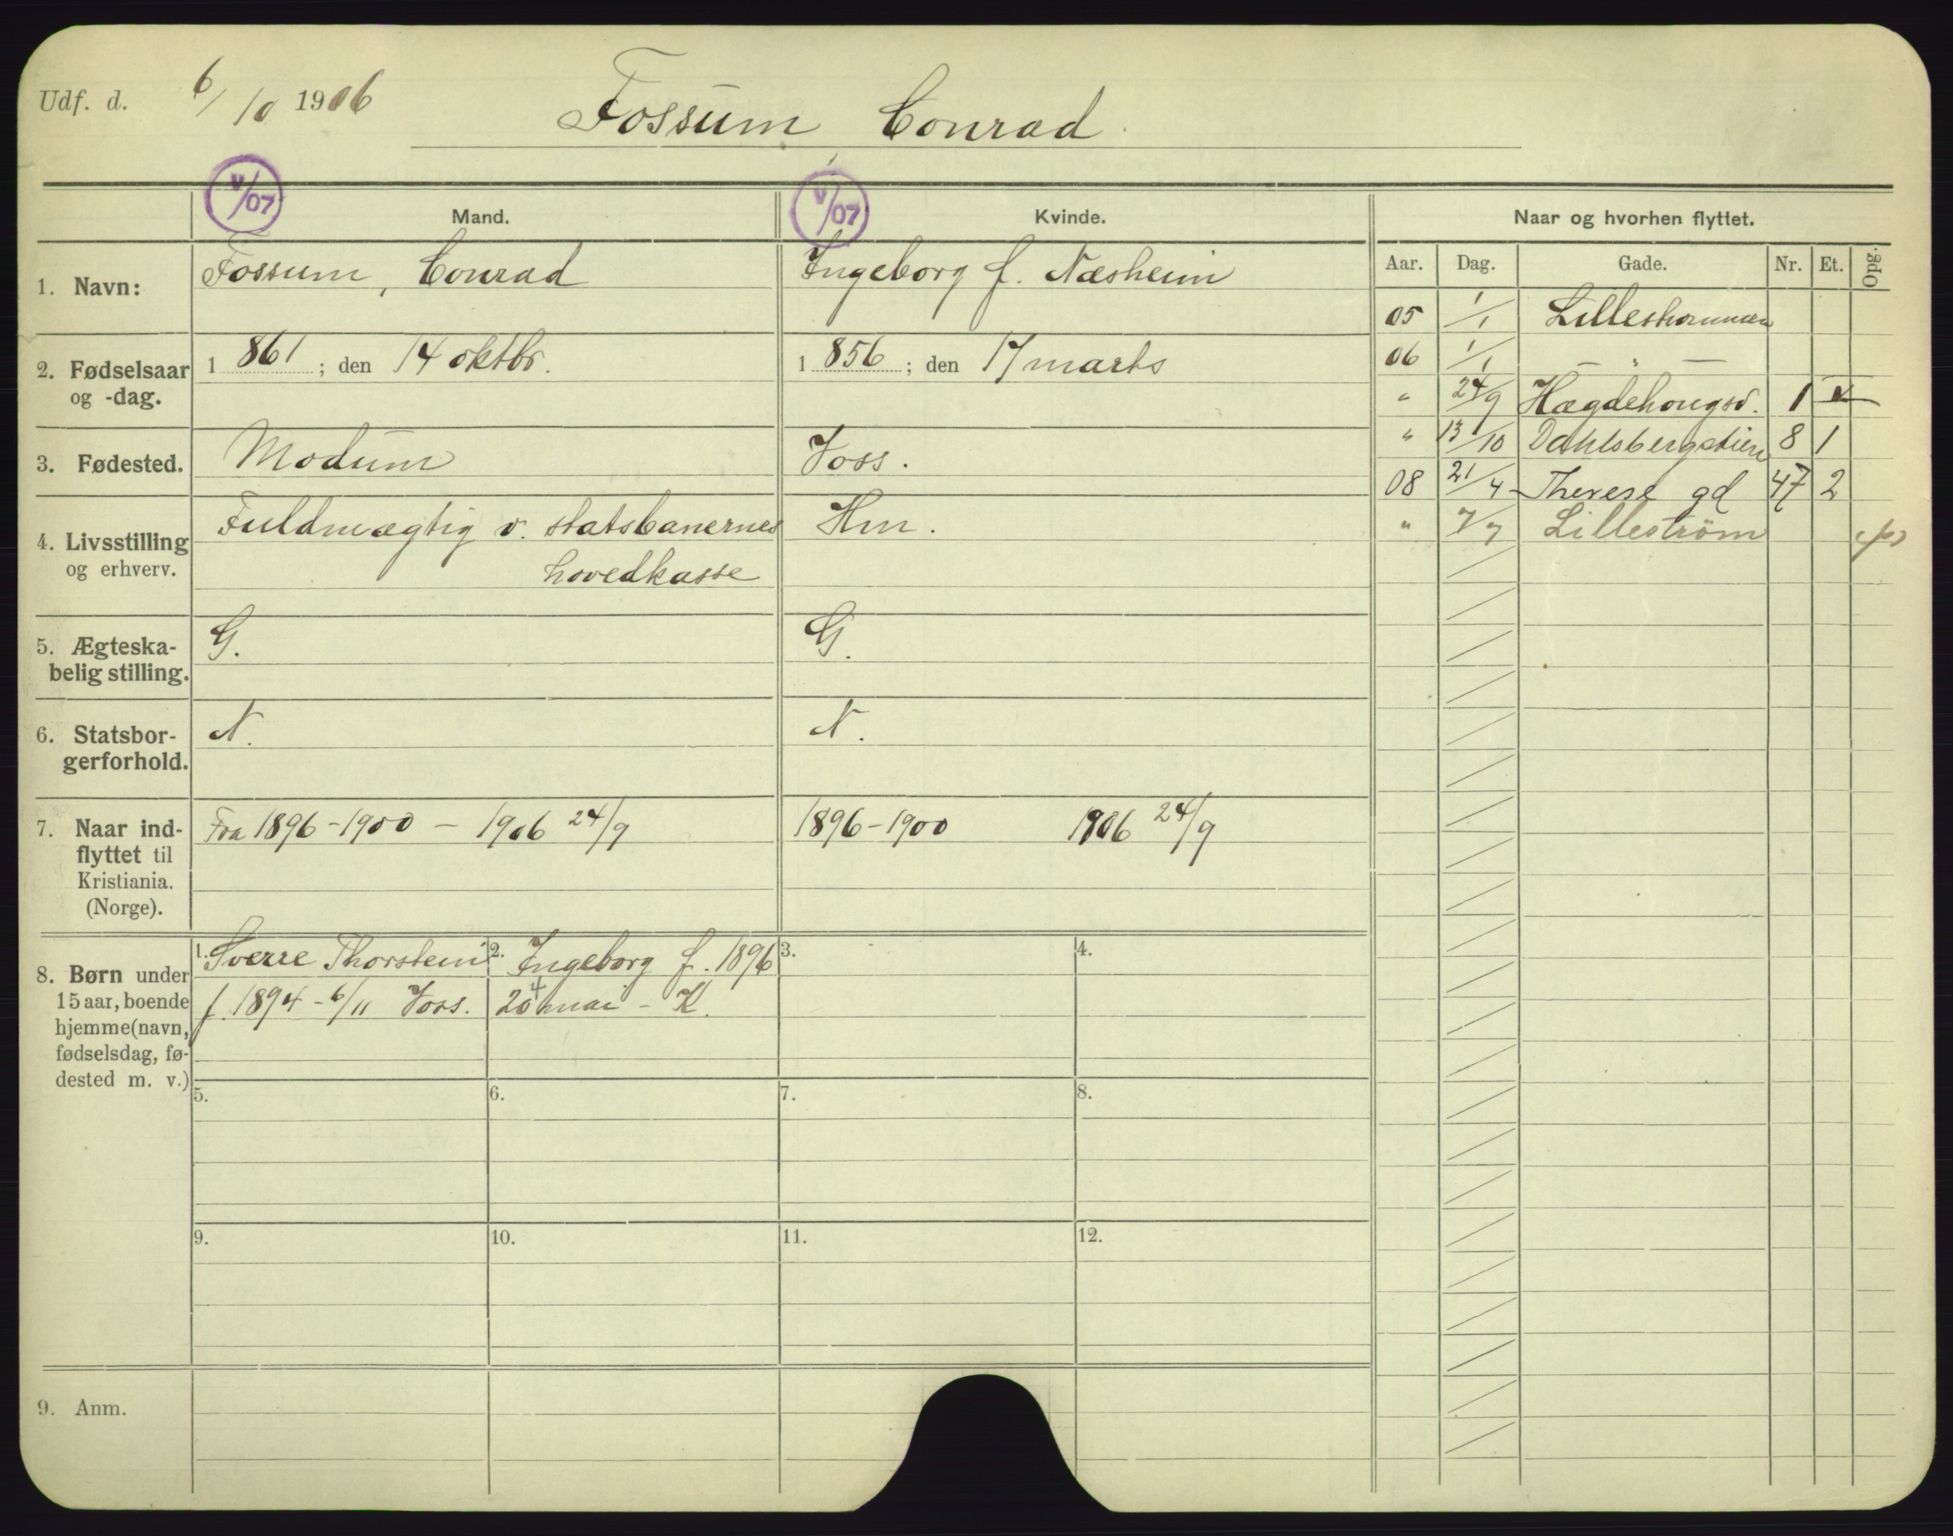 Udf. d. 6/10 1906
Fossum, Conrad
V/07
V/07
Mand.
Kvinde.
Naar og hvorhen flyttet.
Aar. Dag. Gade. Nr. Et. Opg.
1. Navn:
Fossum, Conrad
Ingeborg f. Næsheim
2. Fødselsaar
og -dag.
1861; den 14 oktbr.
1856; den 17 marts
3. Fødested.
Modum
Voss.
4. Livsstilling
og erhverv.
Fuldmægtig v. statsbanernes
hovedkasse
Hm.
5. Ægteska-
belig stilling.
G.
G.
6. Statsbor-
gerforhold.
N.
N.
7. Naar ind-
flyttet til
Kristiania.
(Norge).
Fra 1896-1900 - 1906 24/9
1896-1900 1906 24/9
8. Børn under
15 aar, boende
hjemme (navn,
fødselsdag, fø-
dested m. v.)
1. Sverre Thorstein
f. 1894 - 6/11 Voss.
2. Ingeborg f. 1896
20 mai - K.
3.
4.
5.
6.
7.
8.
9.
10.
11.
12.
9. Anm.
05 1/1
06 1/1 — " —
" 24/9 Hægdehougsv. 1
" 13/10 Dahlsbergstien 8 1
08 21/4 Therese gd 47 2
" 7/7 Lilleström